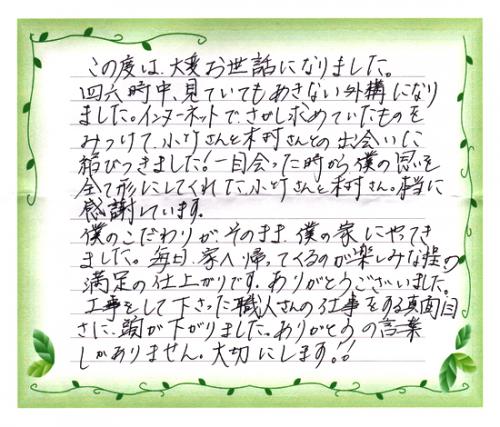 この度は、大変お世話になりました。
四六時中、見ていてもあきない外構になり
ました。インターネットで、さがし求めていたものを
みつけて、小竹さんと木村さんとの出会いに
結びつきました！一目会った時から僕の思いを
全て形にしてくれた、小竹さんと木村さん。本当に
感謝しています。
僕のこだわりが、そのまま、僕の家にやってき
ました。毎日、家へ帰ってくるのが楽しみな程の
満足の仕上がりです。ありがとうございました。
工事をして下さった職人さんの仕事をする真面目
さに、頭が下がりました。ありがとうの言葉
しかありません。大切にします。！